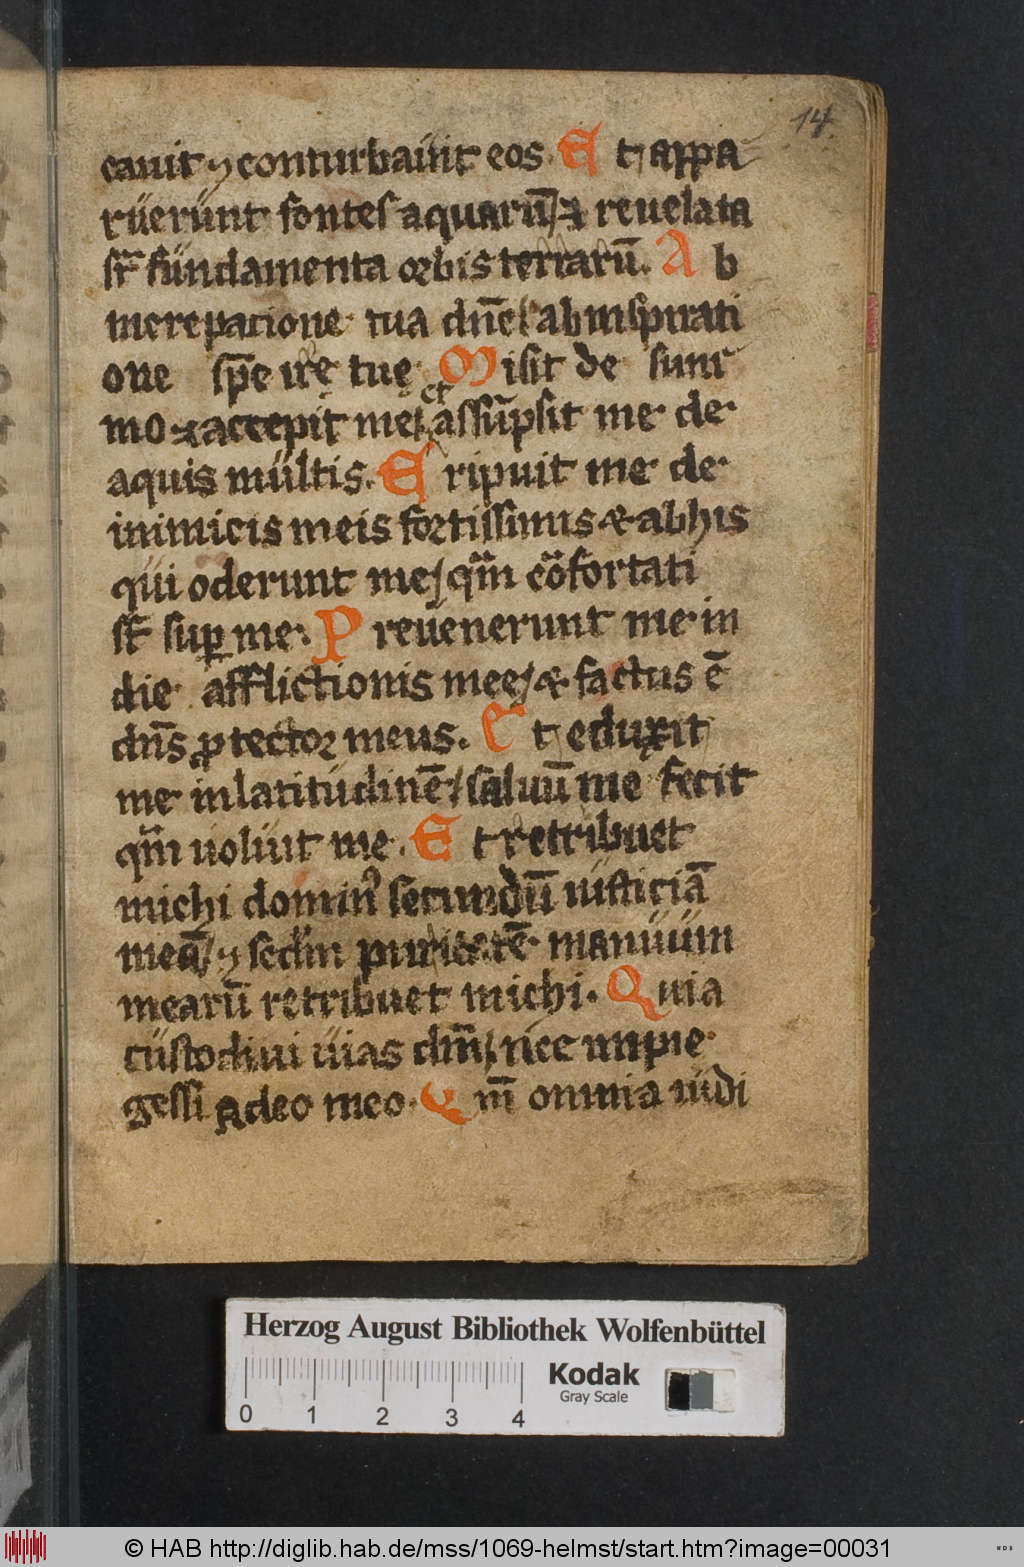 14.
cauit ⁊ conturbauit eos. Et appa
ruerunt fontes aquarū / ⁊ reuelata
sīt fundamenta orbis terrarū. Ab
increpatione tua dn̄e / ab inspirati
one sp̄e ire tuę. Misit de sum
mo ⁊ accepit me / et assūpsit me de
aquis multis. Eripuit me de
inimicis meis fortissimis & ab his
qui oderunt me / qm̄ cōfortati
sīt suꝑ me. Preuenerunt me in
die afflictionis mee / & factus ē
dn̄s ꝓtector meus. Et eduxit
me in latitudinē / saluū me fecit
qm̄ uoluit me. Et retribuet
michi dominꝰ secundū iusticiā
meā / ⁊ secdm puritatē manuum
mearū retribuet michi. Quia
custodiui uias dm̄i / nec impie
gessi a deo meo. Qm̄ omnia iudi
Herzog August Bibliothek Wolfenbüttel
Kodak
Gray Scale
0 1 2 3 4
© HAB http://diglib.hab.de/mss/1069-helmst/start.htm?image=00031